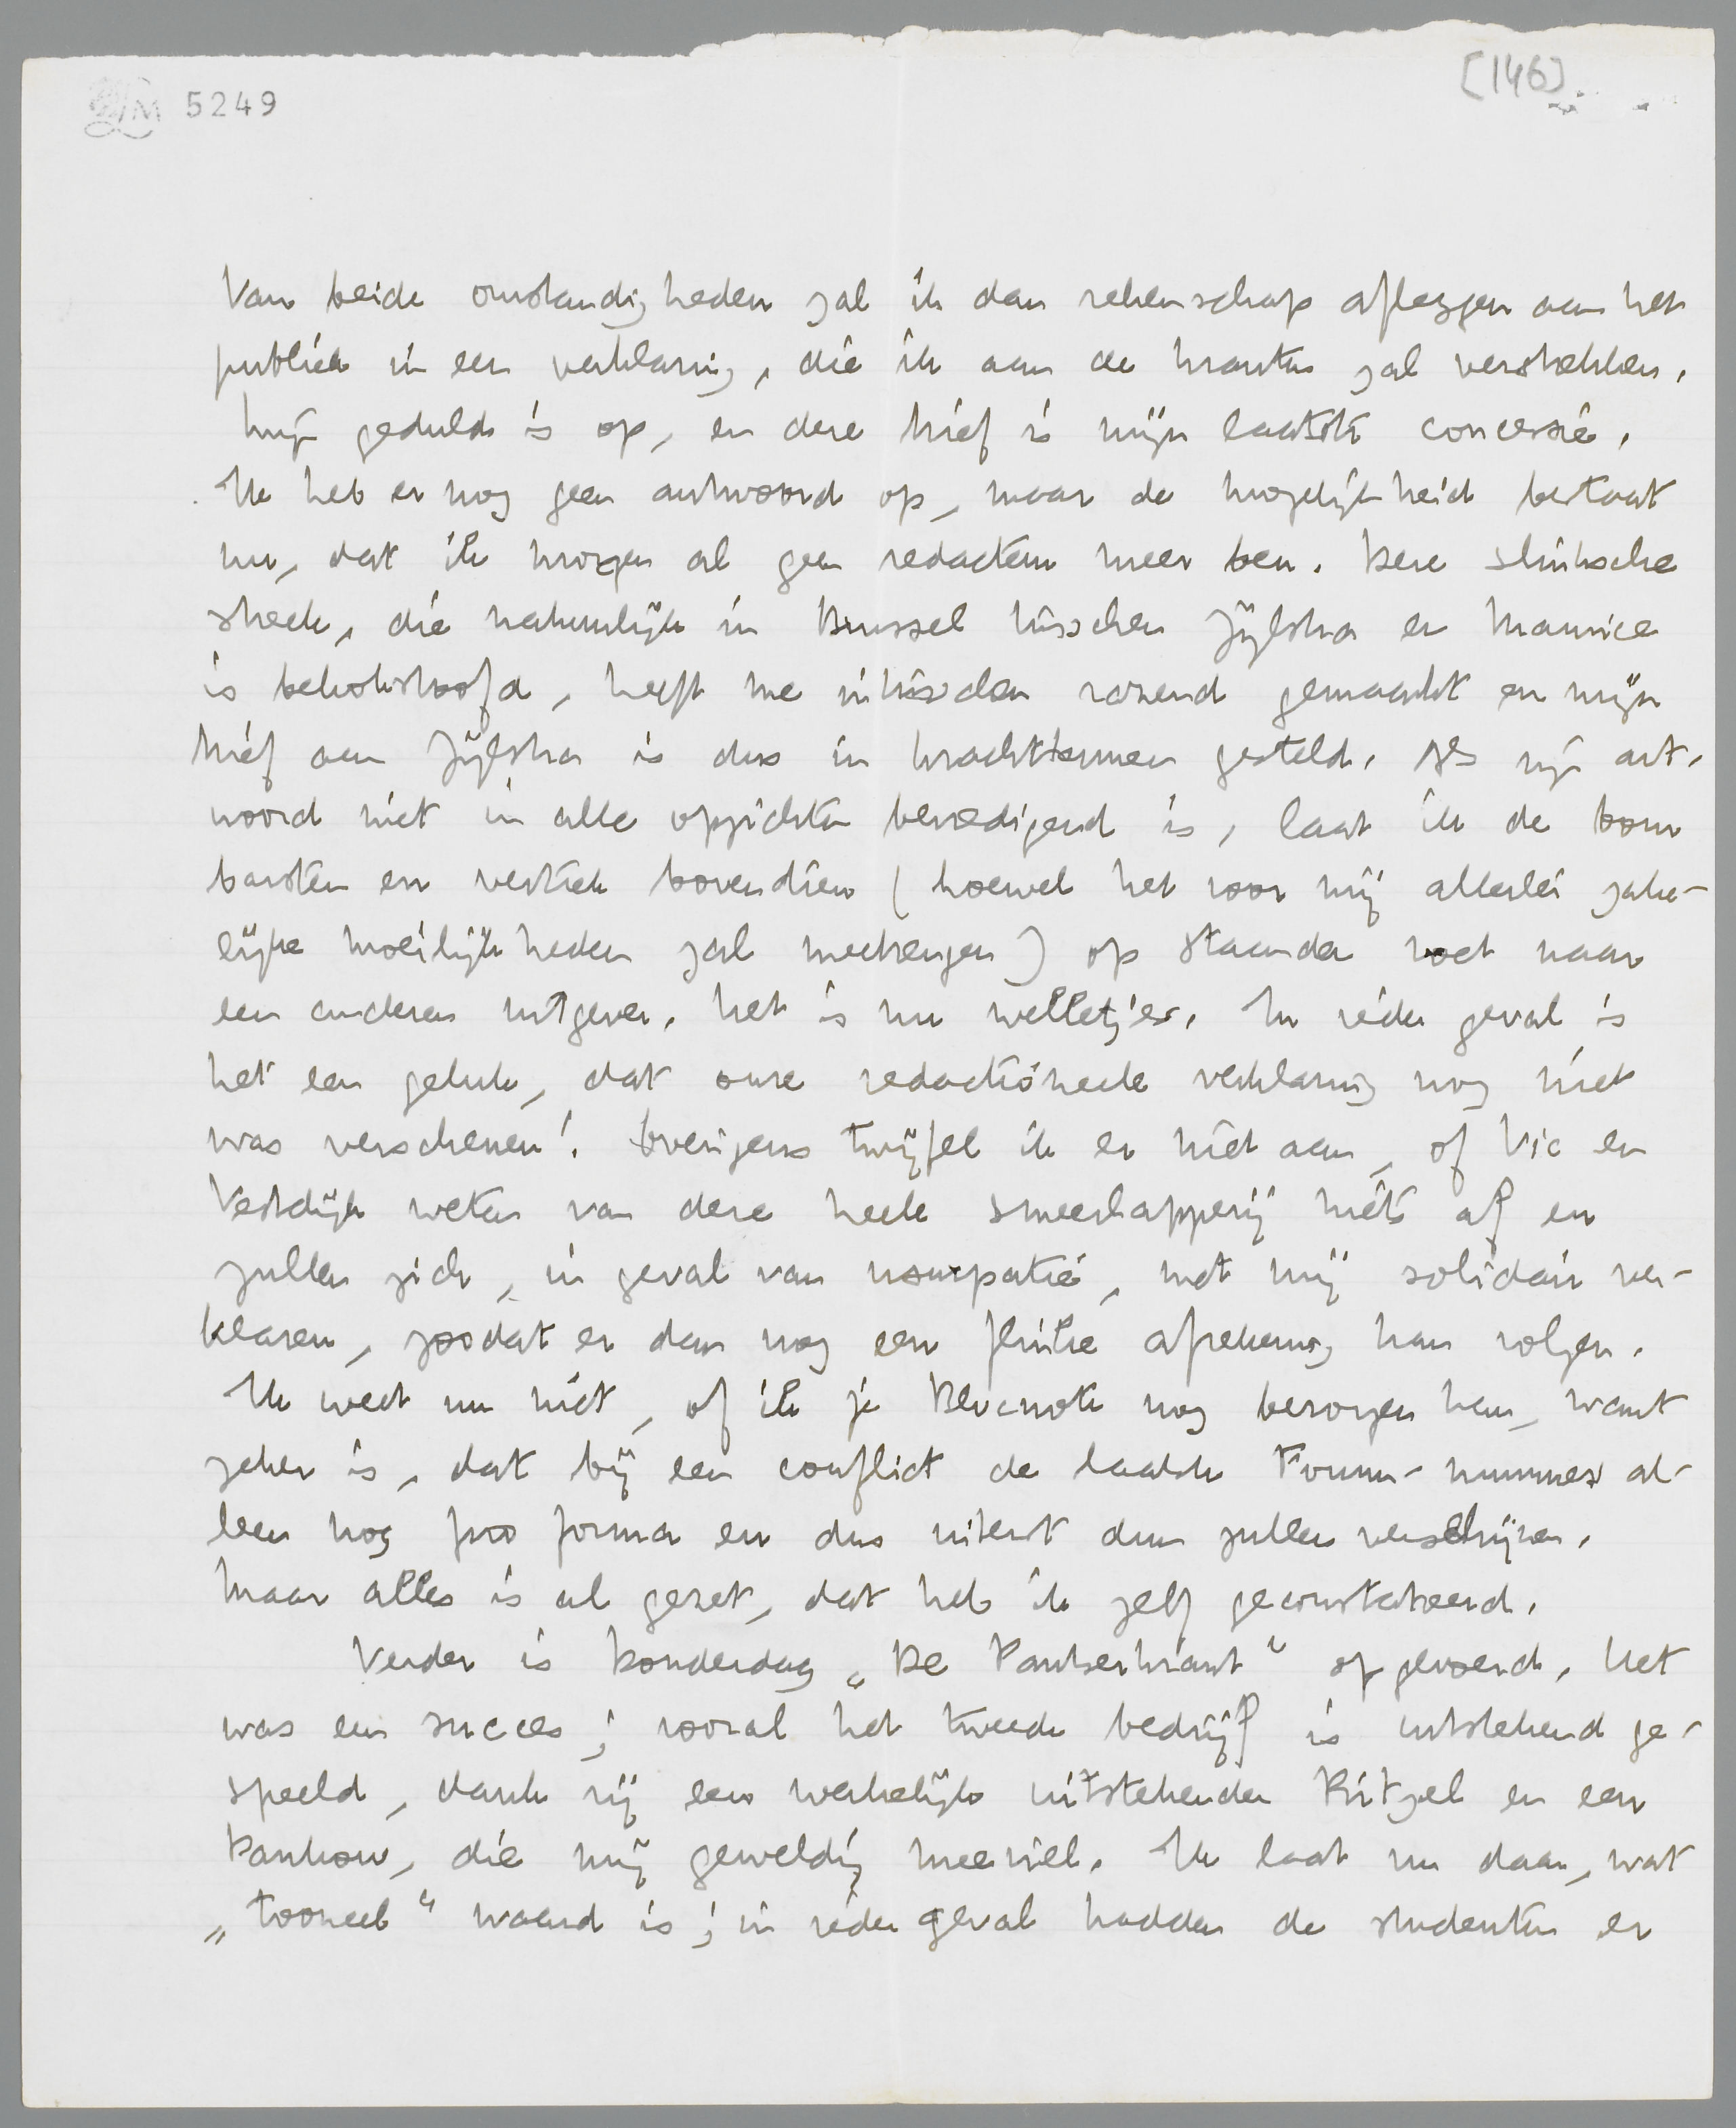 5249
[146]
Van beide omstandigheden zal ik dan rekenschap afleggen aan het
publiek in een verklaring, die ik aan de kranten zal verstrekken.
Mijn geduld is op, en deze brief is mijn laatste concessie.
Ik heb er nog geen antwoord op, maar de mogelijkheid bestaat
nu, dat ik morgen al geen redacteur meer ben. Deze slinksche
streek, die natuurlijk in Brussel tusschen Zijlstra en Maurice
is bekokstoofd, heeft me intusschen razend gemaakt en mijn
brief aan Zijlstra is dus in krachttermen gesteld. Als zijn ant-
woord niet in alle opzichten bevredigend is, laat ik de bom
barsten en vertrek bovendien (hoewel het voor mij allerlei zake-
lijke moeilijkheden zal meebrengen) op staande voet naar
een anderen uitgever. Het is nu welletjes. In ieder geval is
het een geluk, dat onze redactioneele verklaring nog niet
was verschenen! Overigens twijfel ik er niet aan, of Vic en
Vestdijk weten van deze heele smeerlapperij niets af en
zullen zich, in geval van usurpatie, met mij solidair ver-
klaren, zoodat er dan nog een flinke afrekening kan volgen.
Ik weet nu niet, of ik je Blocnote nog bezorgen kan, want
zeker is, dat bij een conflict de laatste Forum-nummers al-
leen nog pro forma en dus uiterst dun zullen verschijnen.
Maar alles is al gezet, dat heb ik zelf geconstateerd.
Verder is Donderdag „De Pantserkrant" opgevoerd. Het
was een succes; vooral het tweede bedrijf is uitstekend ge-
speeld, dank zij een werkelijk uitstekenden Ritzel en een
Pankow, die mij geweldig meeviel. Ik laat nu daar, wat
„tooneel" waard is; in ieder geval hadden de studenten er